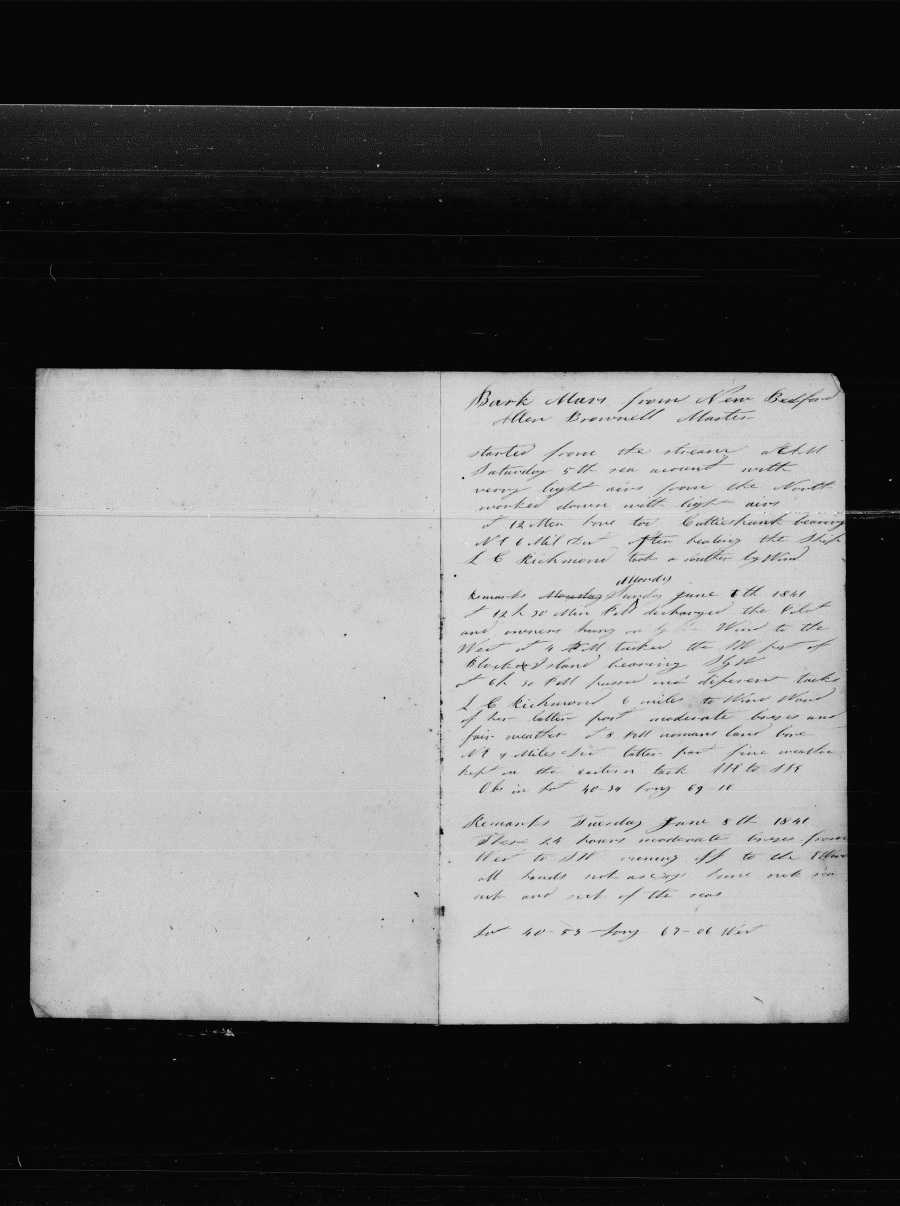 Bark Mars from New Bedford
Allen Brownell Master
started from the stream at A M
Saturday 5th sea acount with
verry light airs from the North
worked down with light airs
at 12 Men bore to Cuttiehunk bearing
N E 6 Mil Dis After beating the Ship
L C Richmond took a souther ly Wind
Monday
Remarks Monday Sunday June 6th 1841
at 12 h 30 Min P M discharged the Pilot
and owners Wind to the
West at 4 P M tacked the S W part of
Block Island bearing S by W
at 6h 30 P M passed on diferent tacks
L C Richmond 6 miles to Wind Ward
of her latter part moderate breses and
fair weather at 8 P M nomans land bore
N E 4 Miles Dis latter part fine weather
kept on the eastern tack to
Obs in Lat 40-39 Long 69-10
Remarks Tuesday June 8th 1841
These 24 hours moderate breses from
West to S W runing off to the E Ward
all hands not
and sick of the seas
Lat 40-53 Long 67-06 West